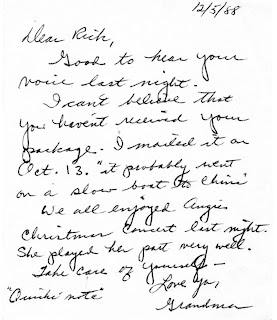 12/5/88
Dear Rich,
Good to hear your
voice last night.
I can't believe that
you haven't received your
package. I mailed it on
Oct. 13. "it probably went
on a slow boat to China"
We all enjoyed Angie's
Christmas concert last night.
She played her part very well.
Take care of yourself -
Love Ya,
"Quickie note"
Grandma